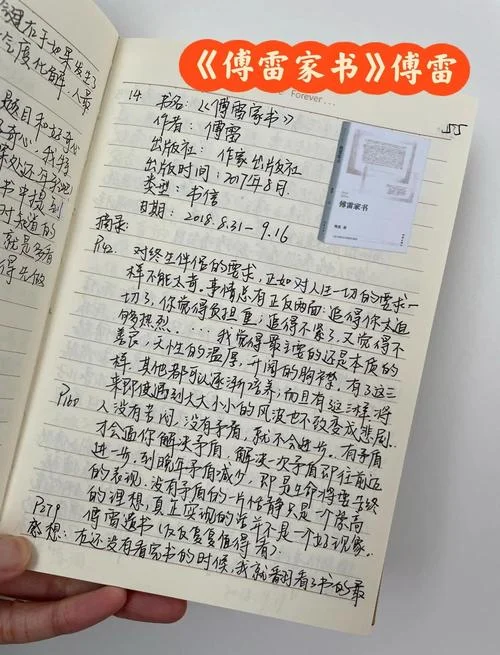 《傅雷家书》傅雷
Forever...
在于如果发生了
气度化解,人最
题目和好奇心
奇心。我特
深处还有我吧
书中找到
时知道的
就是多看
得先做
14
书名:《傅雷家书》
55
作者:傅雷
出版社:作家出版社
出版时间:2017年8月
类型:书信
日期:2018.8.31-9.16
傅雷家书
摘录:
P42 对终生伴侣的要求,正如对人生一切的要求一
样不能太苛。事情总有正反两面:追得你太迫
切了,你觉得负担重;追得不紧了,又觉得不
够热烈。...我觉得最主要的还是本质的
善良,天性的温厚,开阔的胸襟。有了这三
样,其他都可以逐渐培养,而且有了这三样,将
来即使遇到大大小小的风波也不致变成悲剧。
P160 人没有苦闷,没有矛盾,就不会进步。有矛盾
才会逼你解决矛盾,解决一次矛盾即往前迈
进一步。到晚年矛盾减少,即是生命将要告终
的表现。没有矛盾的一片恬静只是一个崇高
的理想,真正实现的话并不是一个好现象。
P279 傅雷遗书(反反复复值得看)
感想:在还没有看家书的时候,我就翻看了书的最